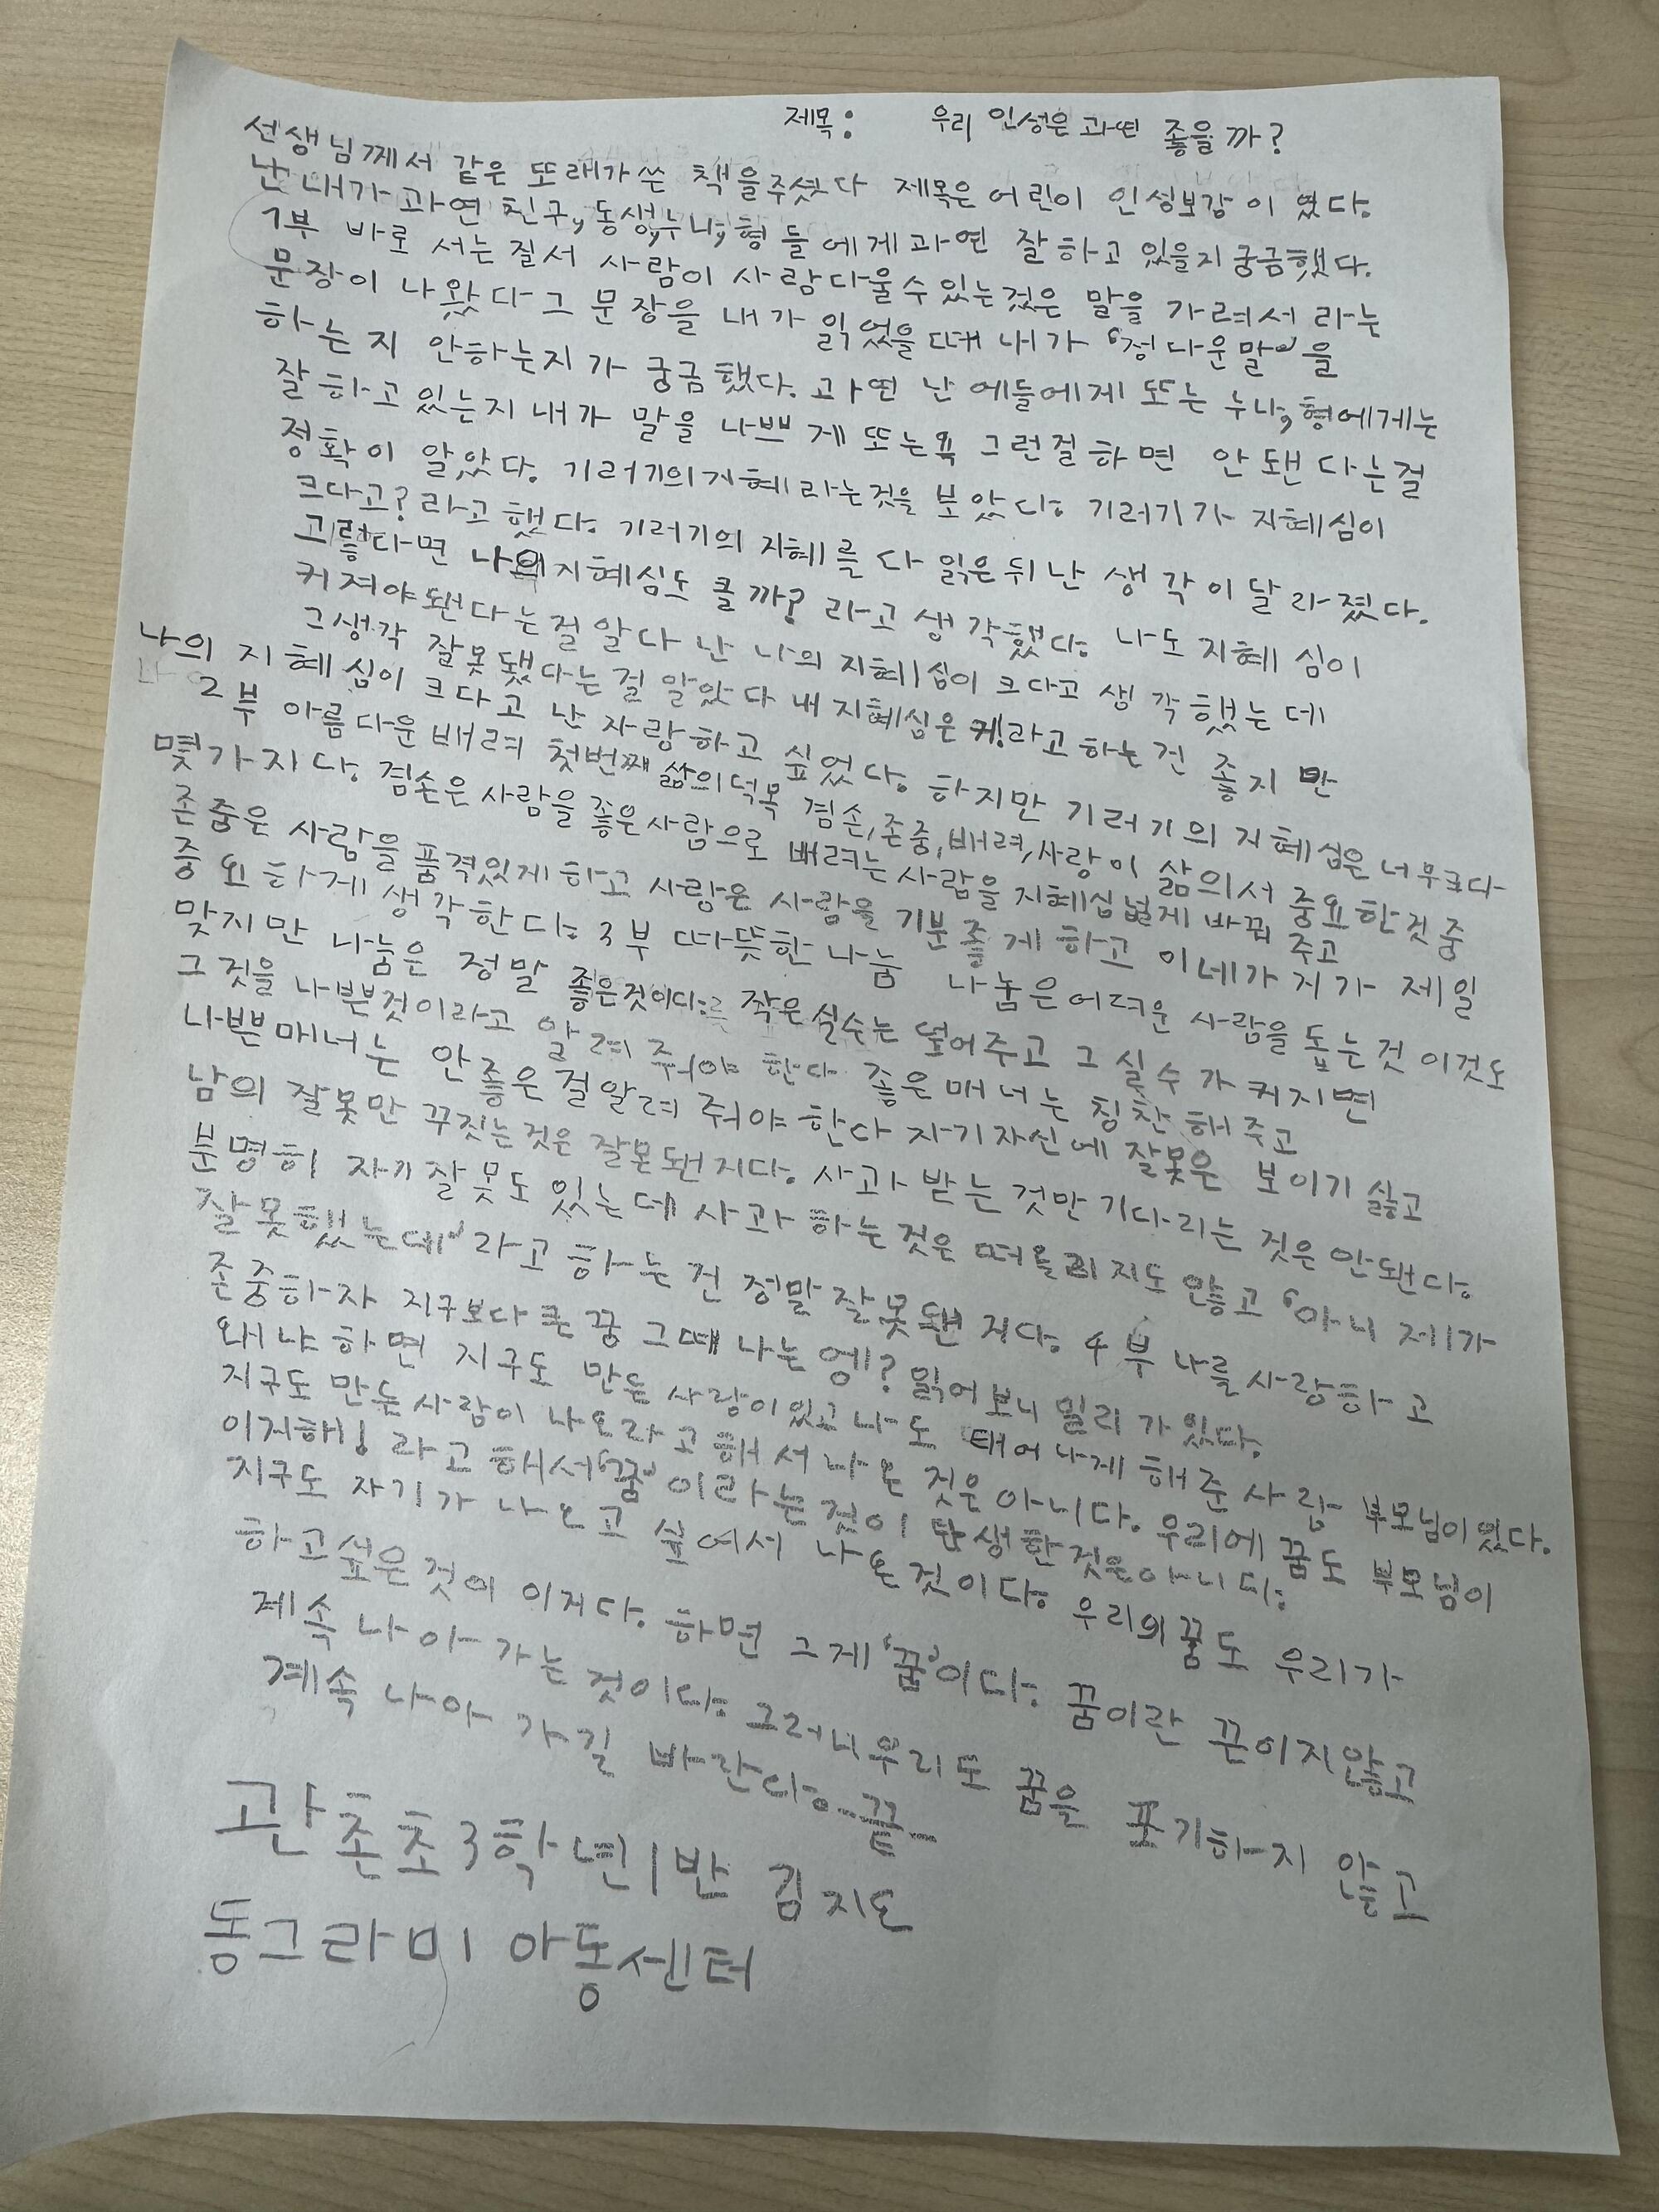 제목: 우리 인성은 과연 좋을까?
선생님께서 같은 또래가 쓴 책을주셧다 제목은 어린이 인성보감 이 였다.
난 내가 과연 친구, 동생, 누나, 형 들 에게 과연 잘 하고 있을지 궁금했다.
1부 바로 서는 질서 사람이 사람다울수 있는것은 말을 가려서 라는
문장이 나왔다 그 문장을 내가 읽었을 때 내가 '정다운말'을
하는 지 안하는지가 궁금했다. 과연 난 에들에게 또는 누나, 형에게는
잘 하고 있는지 내가 말을 나쁘게 또는욕 그런걸하면 안됀다는걸
정확이 알았다. 기러기의지혜 라는것을 보았다. 기러기가 지혜심이
크다고? 라고 했다. 기러기의 지혜를 다 읽은 뒤 난 생각이 달라졌다.
그렇다면 나의지혜심도 클까? 라고 생각했다. 나도 지혜 심이
커져야됀다는걸 알다 난 나의 지혜심이 크다고 생각했는데
그생각 잘못됐다는걸 알았다 내 지혜심은 커!라고 하는건 좋지 만
나의 지혜심이 크다고 난 자랑하고 싶었다. 하지만 기러기의 지혜심은 너무크다
2부 아름다운 배려 첫번째 삶의덕목 겸손, 존중, 배려, 사랑이 삶의서 중요한것 중
몇가지다. 겸손은 사람을 좋은사람으로 배려는 사람을 지혜심넓게 바꿔 주고
존중은 사람을 품격있게 하고 사랑은 사람을 기분좋게 하고 이네가지가 제일
중요하게 생각한다. 3부 따뜻한 나눔 나눔은어려운 사람을 돕는것 이것도
맞지만 나눔은 정말 좋은것이다. 작은실수는 덮어주고 그 실수가 커지면
그것을 나쁜것이라고 알려줘야 한다 좋은매너는 칭찬해주고
나쁜매너는 안좋은걸알려 줘야한다 자기자신에 잘못은 보이기 싫고
남의 잘못만 꾸짓는것은 잘못됀지다. 사과 받는 것만 기다리는 것은 안됀다.
분명히 자기잘못도 있는데 사과 하는것은 떠올리지도 않고 '아니 제가
잘못했는데' 라고 하는건 정말잘못됀 지다. 4부 나를사랑하고
존중하자 지구보다 큰꿈 그때 나는 엥? 읽어보니 일리가있다.
왜냐 하면 지구도 만든 사랑이 있고 나도 태어나게 해준 사람 부모님이 있다.
지구도 만든사람이 나오라고 해서 나온 것은 아니다. 우리에 꿈도 부모님이
이지해! 라고 해서 '꿈' 이라는것이 탄생한것은아니다.
지구도 자기가 나오고 싶어서 나온것이다. 우리의꿈도 우리가
하고싶은 것이 이지다. 하면 그게 '꿈'이다. 꿈이란 끈이지않고
계속 나아 가는 것이다. 그러니 우리도 꿈을 포기하지 않고
계속 나아 가길 바란다. -끝-
관촌초 3학년 1반 김지돈
동그라미 아동센터